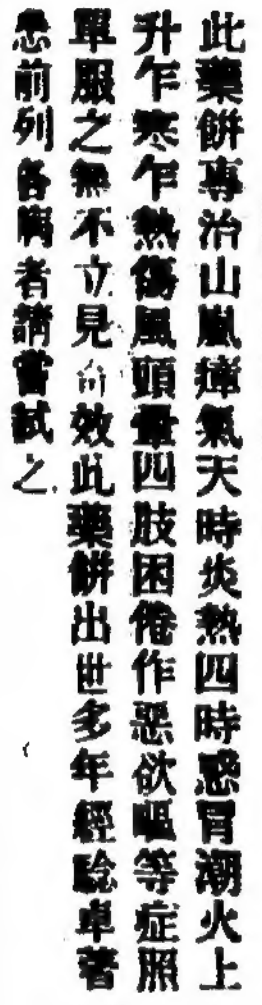 此藥餅專治山嵐瘴氣天時炎熱四時感冒潮火上
升乍寒乍熱傷風頭暈四肢困倦作惡欲嘔等症照
單服之無不立見奇效此藥餅出世多年經驗卓著
患前列各病者請嘗試之